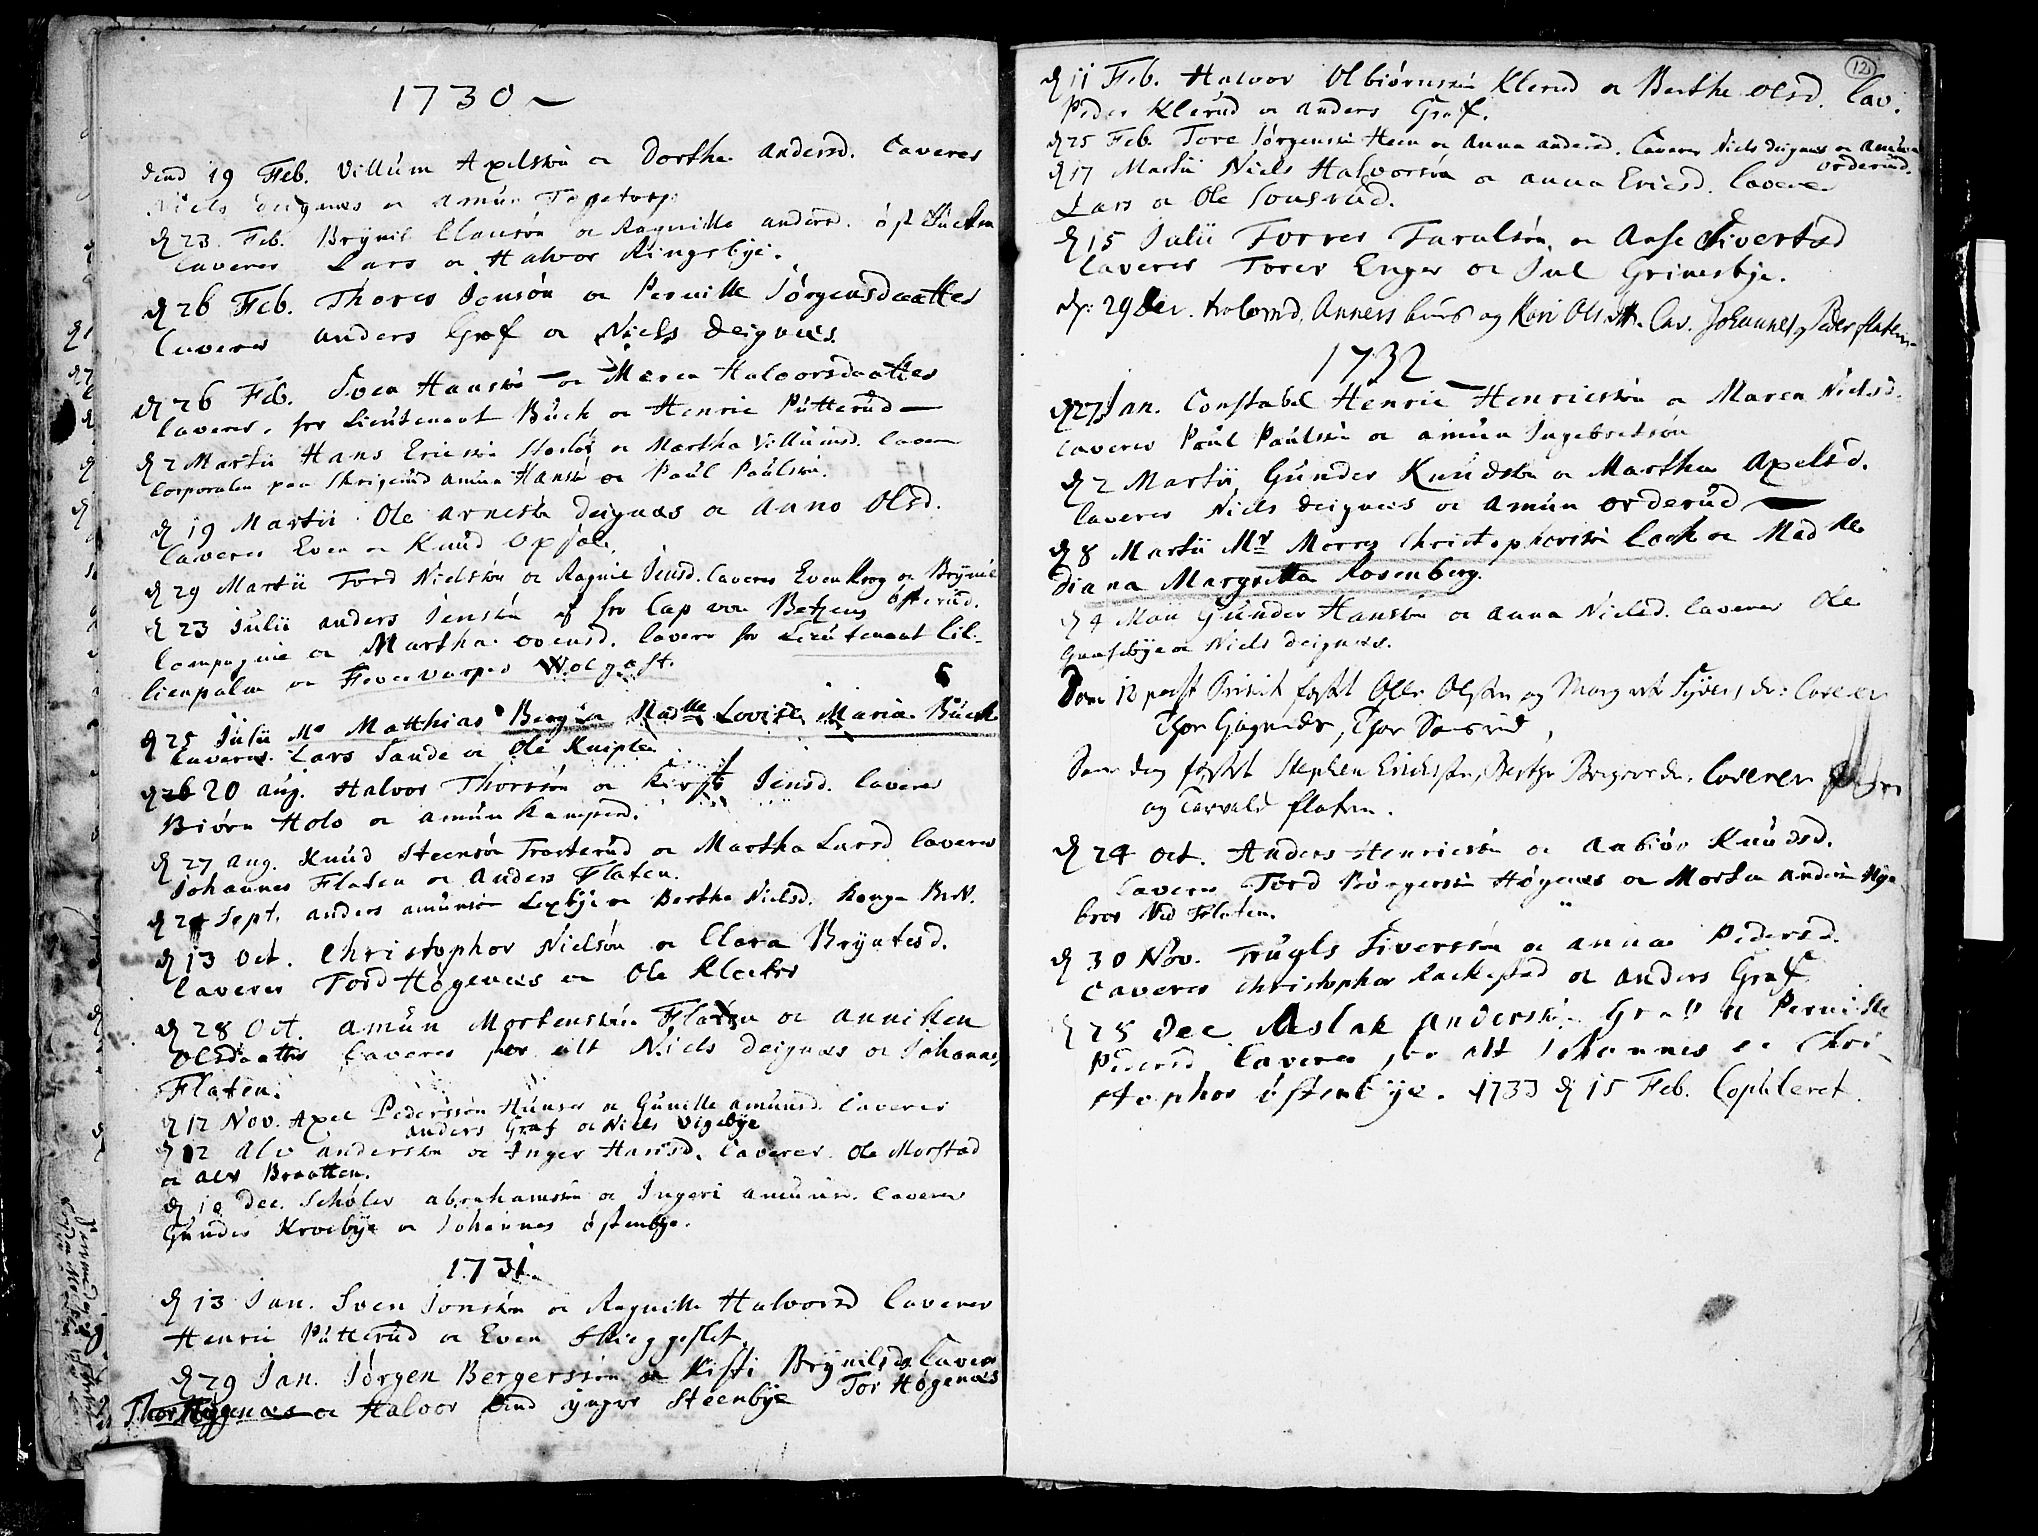 1730
dend 19 Feb. Villüm Axelsøn oc Dorthe Andersd. Caveres
Niels deignæs oc Amün
d 23 Feb. Brÿnil Clausøn oc Ragnille Andersd.
Caveres Lars oc Halvor Ringsbÿe.
d 26 Feb. Thores Jensøn oc Pernille Jørgensdaatter
Caveres Anders Graf oc Niels deignæs.
d 26 Feb. Sven Hansøn oc Maren Halvorsdaatter
Caveres, for Lieutenant Bück oc Henric Pütterüd
d 2 Martii Hans Ericsøn oc Martha Villümsd. Cavere
Corporalen paa Amün Hansøn oc Paül Paülsøn.
d 19 Martii Ole Arnesøn deignæs oc Anno Olsd.
Caveres Even oc Knüd Opsal.
d 29 Martii Tord Nielsøn oc Ragnil Jensd. Caveres Even Krog oc Brÿnil
østerüd.
d 23 Julii Anders Jensøn af hr Cap von Betzens
Compagnie oc Martha Ovensd. Cavere hr Lieutenant Lil-
lienpalm oc Wolgast.
d 25 Julii Mr Matthias Berg oc Madlle Lovise Maria Büch
Caveres Lars Sande oc Ole Kniplen
d 20 Aug. Halvor Thorsøn oc Kirsti Jensd. Caveres
Biørn Holo oc Amün Kamperd.
d 27 Aug. Knüd Steensøn Trosterüd oc Martha Larsd Caveres
Johannes Flaten oc Anders Flaten.
d 24 Sept. Anders Amünsøn Lexbÿe oc Berthe Nielsd.
d 13 Oct. Christopher Nielsøn oc Clara Brÿntesd.
Caveres Tord Høgenæs oc Ole Klocker
d 28 Oct. Amün Mortensøn Flaten oc Anniken
Olsdaatter Caveres for alt Niels deignæs oc Johannes
Flaten.
d 12 Nov. Axel Pedersøn Hünser oc Günille Amünsd. Caveres
Anders Graf oc Niels Vigebÿe
d 12 Alv Andersøn oc Inger Hansd. Caveres Ole Morstad
oc Alv Braatten.
d 10 Dec. Schøler Abrahamsøn oc Ingeri Amünsd. Caveres
Günder Kroebÿe oc Johannes østenbÿe.
1731
d 13 Jan. Sven Jonsøn oc Ragnille Halvorsd Caveres
Henric Pütterüd oc Even
d 29 Jan. Jørgen Bergersøn oc Kisti Brÿnilsd. Caveres
Tor Høgenæs
Thor Høgenæs oc Halvor Steenbÿe
12
d 11 Feb. Halvor Olbiørnsøn Klerud oc Berthe Olsd. Cav.
Peder Klerüd oc Anders Graf.
d 25 Feb. Tore Jørgensøn Heen oc Anna Andersd. Caveres Niels deignæs oc Amün
orderüd.
d 17 Martii Niels Halvorsøn oc Anna Ericsd. Caveres
Lars oc Ole Sonsrüd.
d 15 Julii Torres Taralsøn oc Aase Sivertsd
Caveres Tores Enger oc Juul Grimsbÿe.
dy: 29 Dec. trolowd. Anners og Kari Cav. Johannes, Peder flaten
1732
d 27 Jan. Constabel Henric Henricsøn oc Maren Nielsd.
Caveres Paül Paülsøn oc Amün Ingebretsøn
d 2 Martii Günder Knüdsøn oc Martha Axelsd.
Caveres Niels deignæs oc Amün orderüd
d 8 Martii Mr Morry Christophersøn Cock oc Madlle
Diana Margretta Rosenberg.
d 4 Maii Günder Hansøn oc Anna Nielsd. Caveres Ole
Gaasebÿe oc Niels deignæs.
Dom 12 post Trinit Olle Olsøn og Marg Caverer
Thor Gognæs, Thor
Sam dag Stephen Erichsøn, Caverer
og Torvald flaten.
d 24 Oct. Anders Henricsøn oc Anbiør Knüdsd.
Caveres Tord Børgersøn Høgenæs oc Morten Anders Nÿe
broe Ved Flaten.
d 30 Nov. Trügls Siversøn oc Anna Pedersd.
Caveres Christopher Rackestad oc Anders Graf
d 28 Dec Aslak Andersøn Graff oc Pernille
Pedersd Caveres for alt Johannes oc Chri-
stopher østenbÿe. 1733 d 15 Feb. Copuleret.